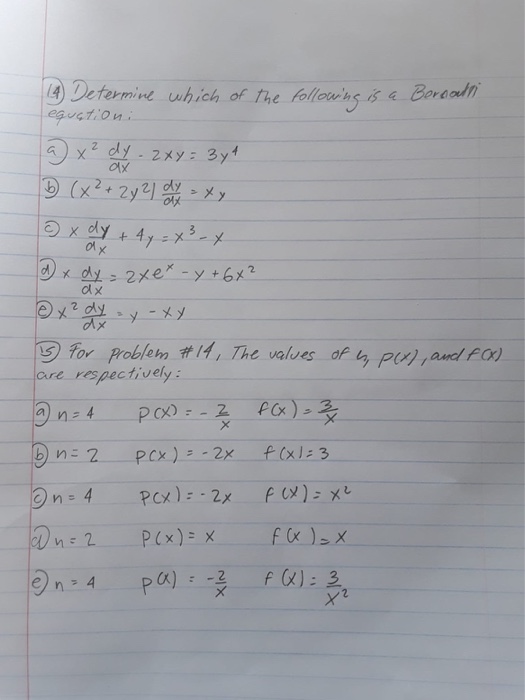 14) Determine which of the following is a Bernoulli
equation:
a) x² dy/dx - 2xy = 3y⁴
b) (x² + 2y²) dy/dx = xy
c) x dy/dx + 4y = x³ - x
d) x dy/dx = 2xeˣ - y + 6x²
e) x² dy/dx = y - xy
15) For problem #14, The values of n, p(x), and f(x)
are respectively:
a) n = 4 P(x) = - 2/x f(x) = 3/x
b) n = 2 P(x) = - 2x f(x) = 3
c) n = 4 P(x) = - 2x f(x) = x²
d) n = 2 P(x) = x f(x) = x
e) n = 4 p(x) = - 2/x f(x) = 3/x²